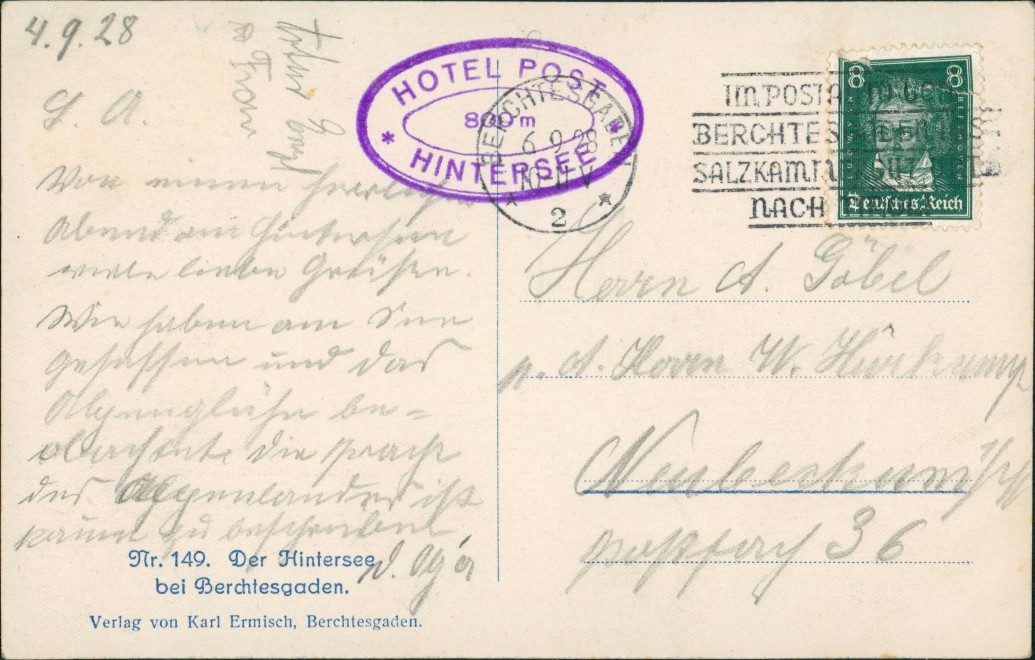 4.9.28
L. A.
Von einem herrlichen
Abend am Hintersee
viele liebe Grüße.
Wir haben am See
gesessen und das
Alpenglühn be=
obachtet. Die Pracht
des Alpenlandes ist
kaum zu beschreiben
HOTEL POST
800 m
* HINTERSEE *
BERCHTESGADEN
6.9.28
10-11 V
* 2 *
IM POSTAUTO
BERCHTESGADEN
SALZKAMMERGUT
NACH
8 8
Deutsches Reich
Herrn A. Göbel
p. A. Herrn W.
Neubeckum
Postfach 36
Nr. 149. Der Hintersee
bei Berchtesgaden.
Verlag von Karl Ermisch, Berchtesgaden.